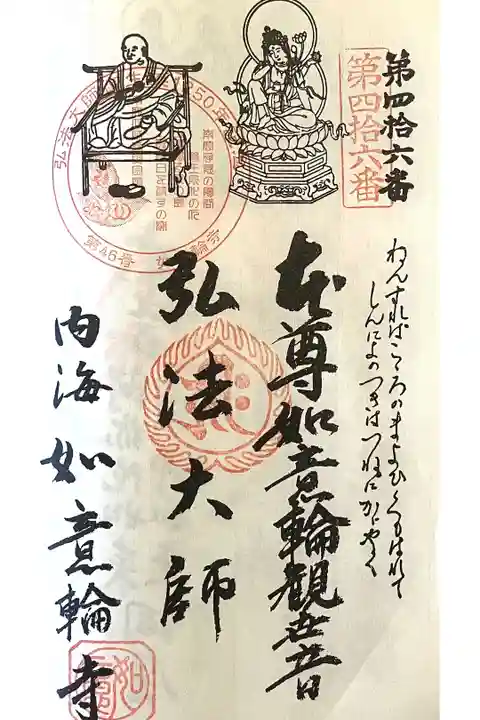 第四拾六番
第四拾六番
ねんずればこころのまよひくもはれて
しんによのつきはつねにかがやく
本尊如意輪観世音
弘法大師
内海如意輪寺
弘法大師
50年
第46番